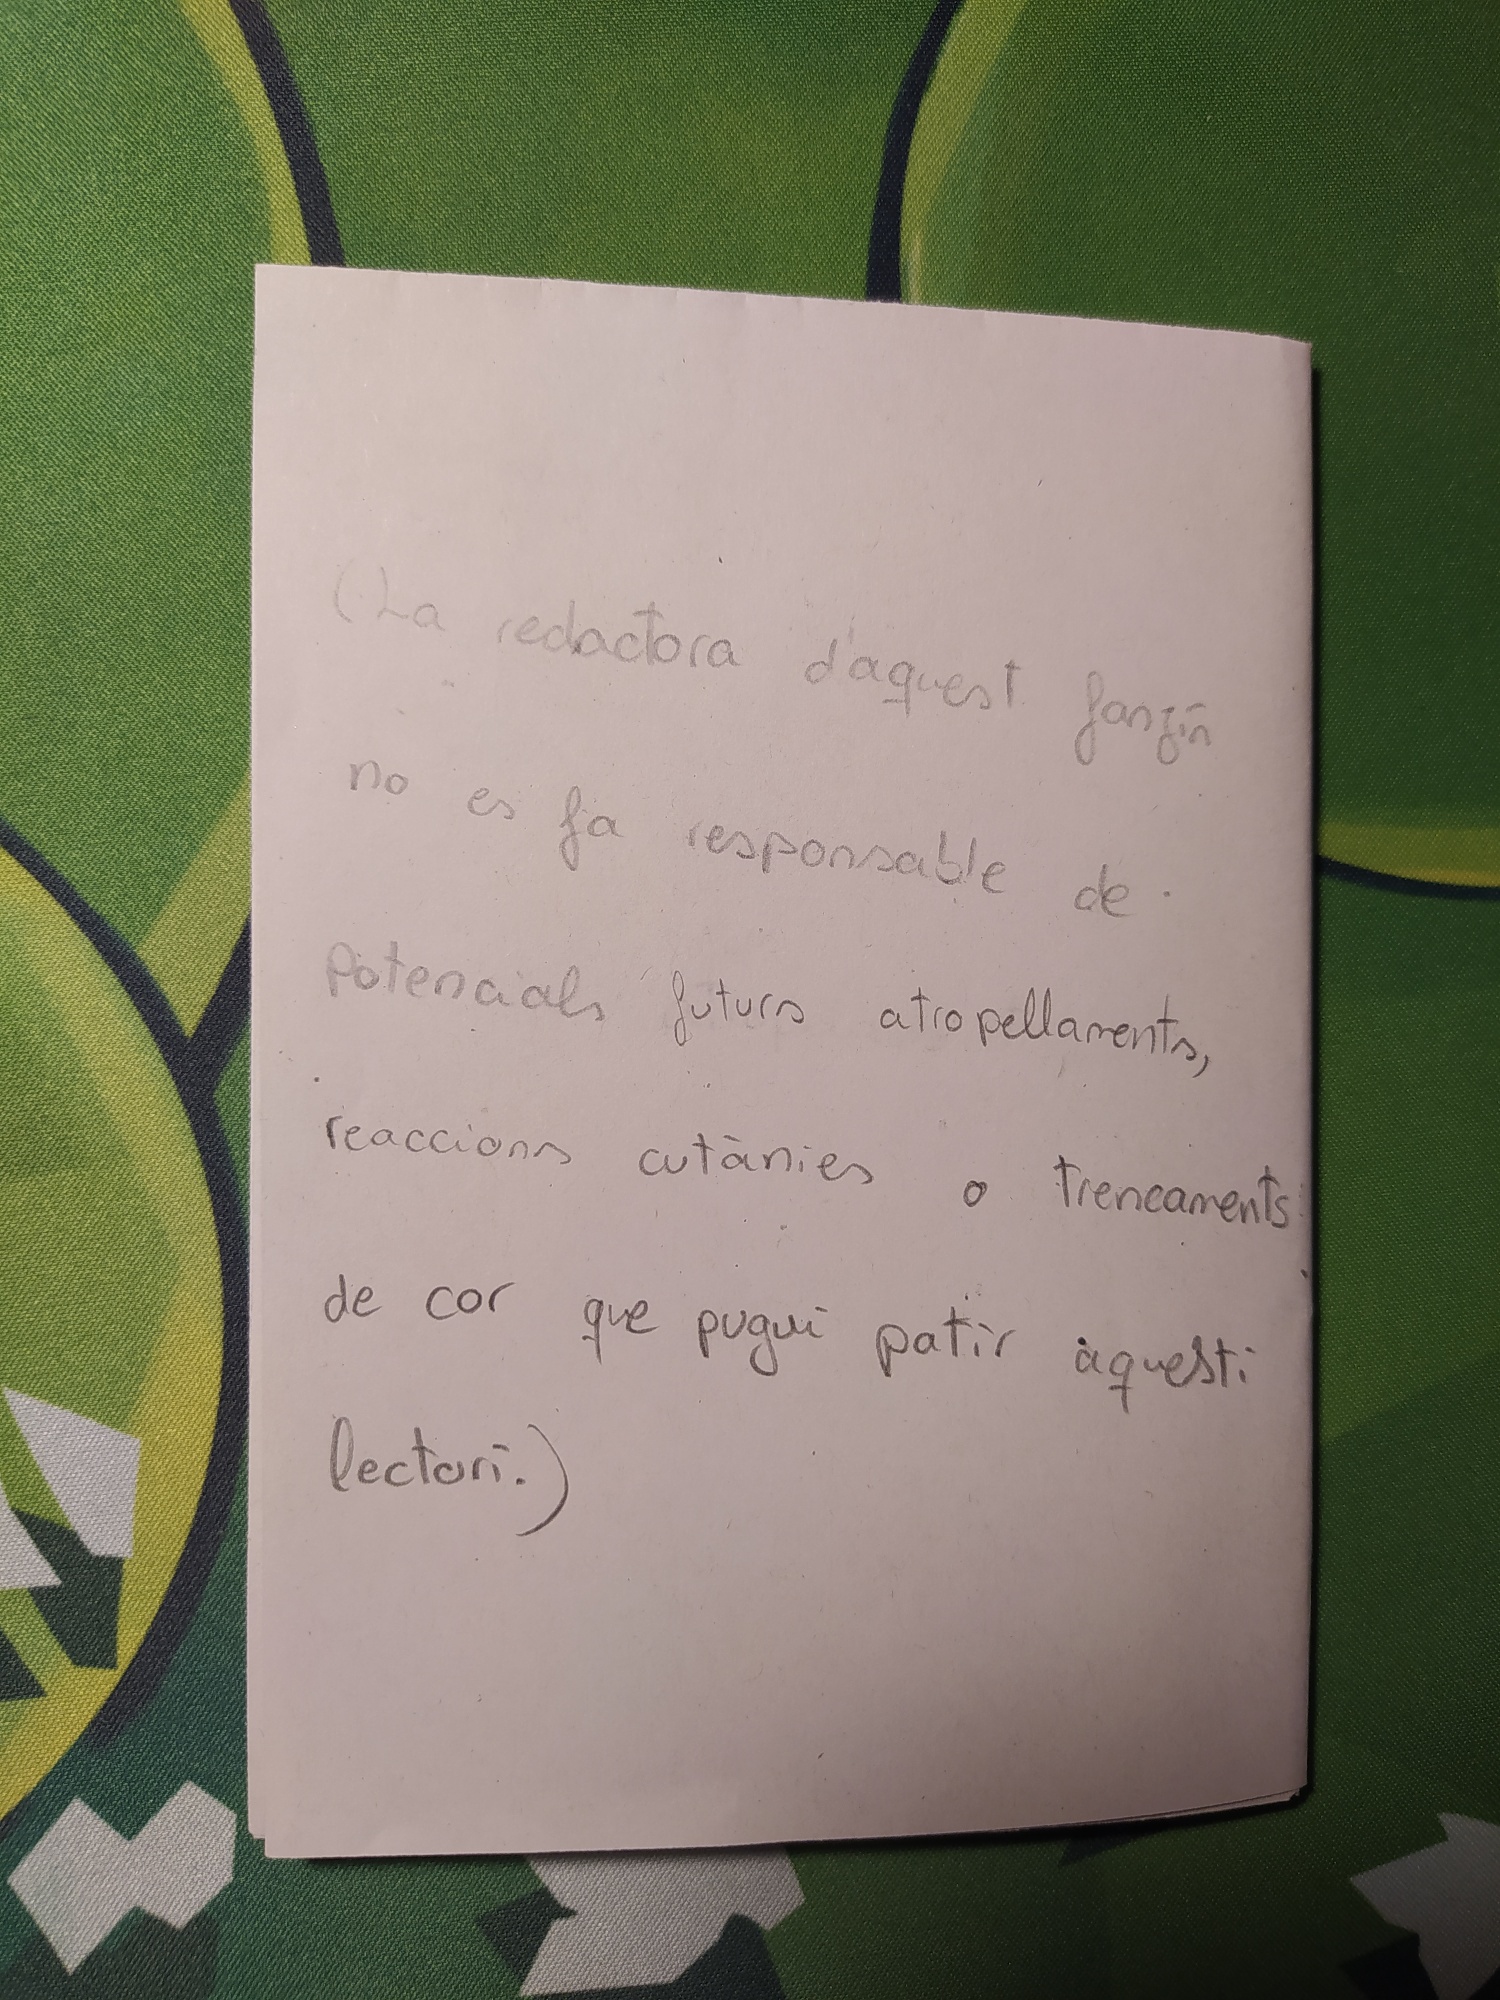 (La redactora d'aquest fanzín
no es fa responsable de
potencials futurs atropellaments,
reaccions cutànies o trencaments
de cor que pugui patir aquesti
lectori.)